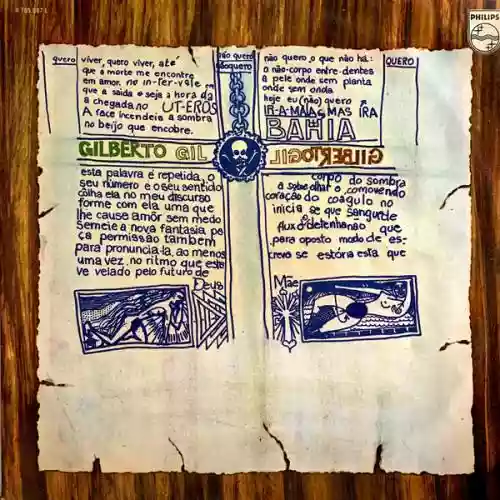 R 765.087 L
PHILIPS
quero
viver, quero viver, até
que a morte me encontre
em amor. no in-ter-va-le em
que a saida e seja a hora da
a chegada no UT-EROS
A face incendeia a sombra
no beijo que encobre.
não quero
não quero
não quero o que não há:
o não-corpo entre-dentes
a pele onde sem planta
onde sem onda
hoje eu (não) quero
IR-A-MAIA, MAS IRÁ
BAHIA
QUERO
GILBERTO GIL
GILBERTO GIL
esta palavra é repetida, o
seu número e o seu sentido
colha ela no meu discurso
forme com ela uma que
lhe cause amôr sem medo
Semeie a nova fantasia pe
ça permissão também
para pronunciá-la, ao menos
uma vez, no ritmo que este
ve velado pelo futuro de
Deus
corpo do sombra
a sobre olhar o comovendo
coração do coagulo no
inicia se que sangue de
fluxo detenhanão que
para oposto modo de es-
crevo se estória esta que
Mãe